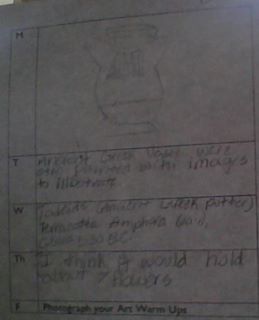 M
T Ancient Greek Vases were
often painted with images
to illustrate
W (ancient Greek pottery)
Terracotta Amphora
530 BC
Th I think it would hold
about 7 flowers
F Photograph your Art Warm Ups